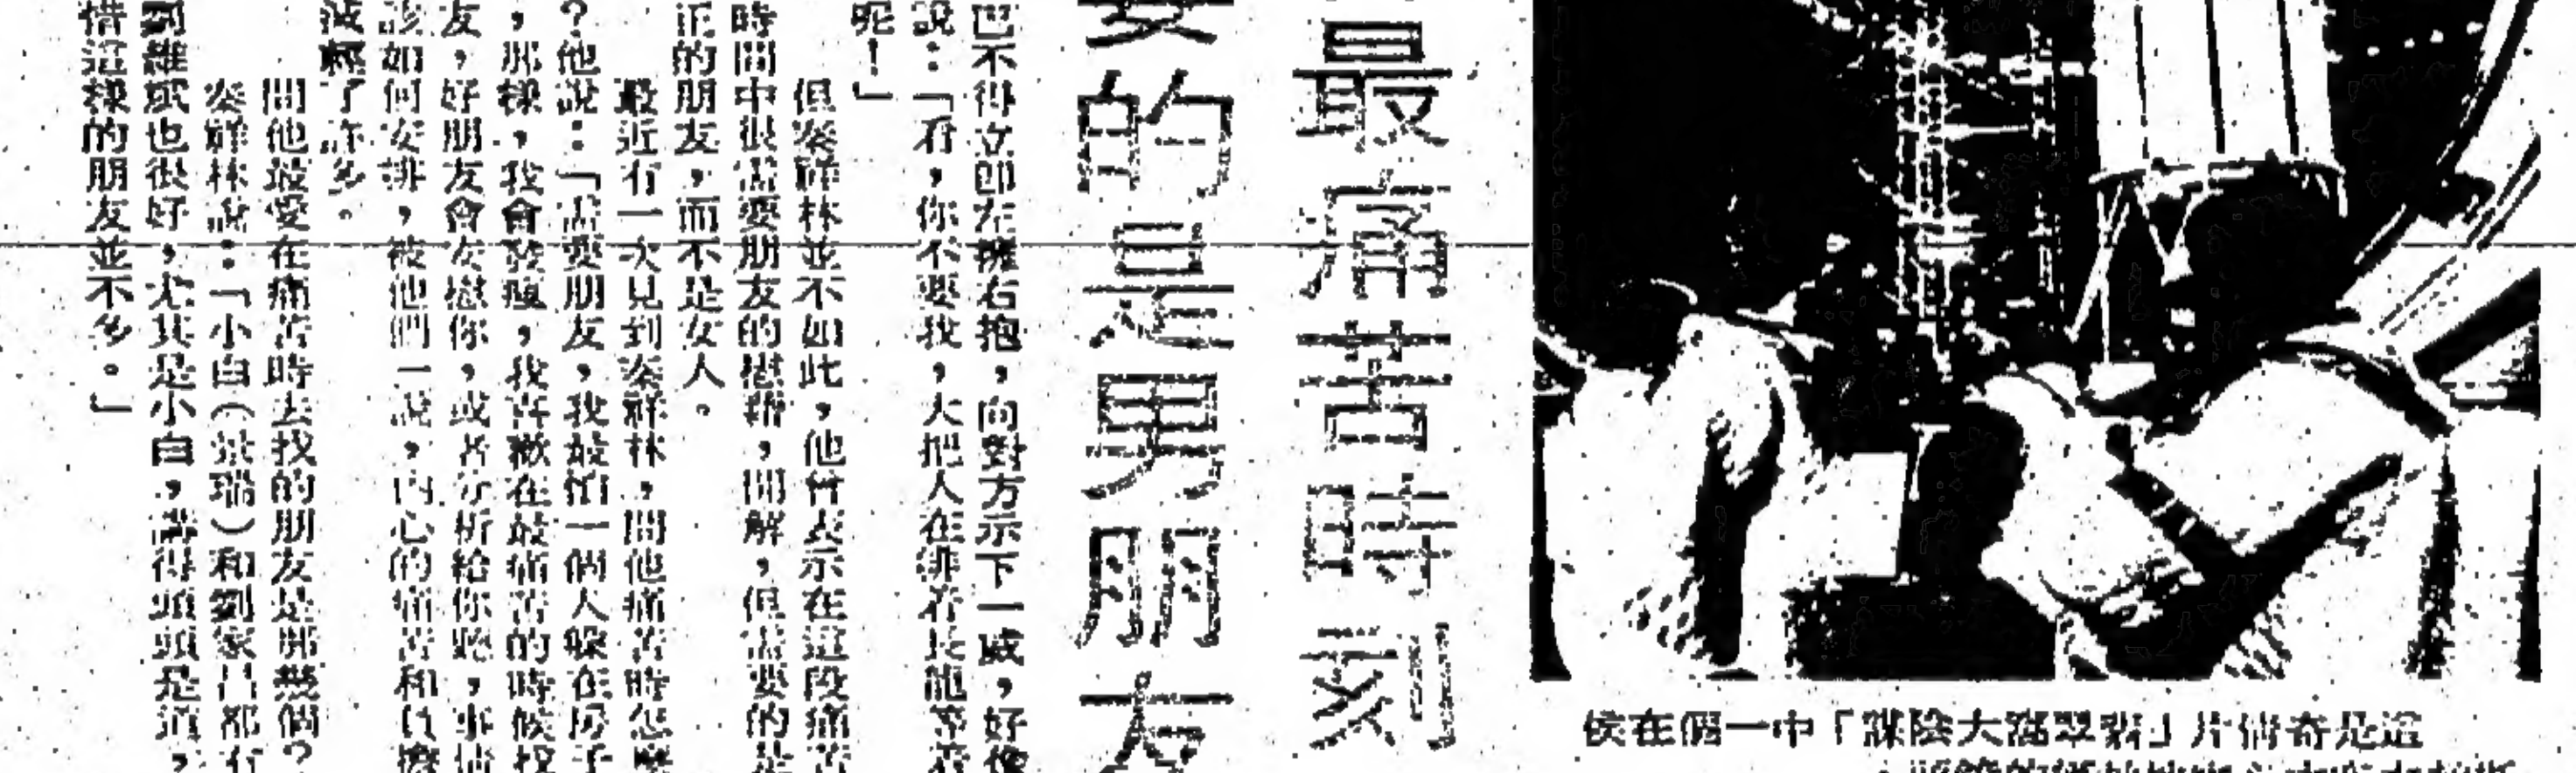 最痛苦時刻
要的是男朋友
也不得立卽左擁右抱,向對方示下一威,好像
說:「看,你不要我,大把人在排着長龍等着
呢!」
但秦祥林並不如此,他曾表示在這段痛苦
時間中很需要朋友的慰藉,開解,但需要的是
正的朋友,而不是女人。
最近有一次見到秦祥林,問他痛苦時怎麼
?他說:「需要朋友,我最怕一個人躱在房子
,那樣,我會發瘋,我喜歡在最痛苦的時候找
友,好朋友會安慰你,或者分析給你聽,事情
該如何安排,被他們一說,內心的痛苦和負擔
減輕了許多。
問他最愛在痛苦時去找的朋友是那幾個?
秦祥林說:「小白(景瑞)和劉家昌都有
到維斌也很好,尤其是小白,講得頭頭是道,
惜這樣的朋友並不多。」
這是奇情片「翡翠窩大陰謀」中一個在侯